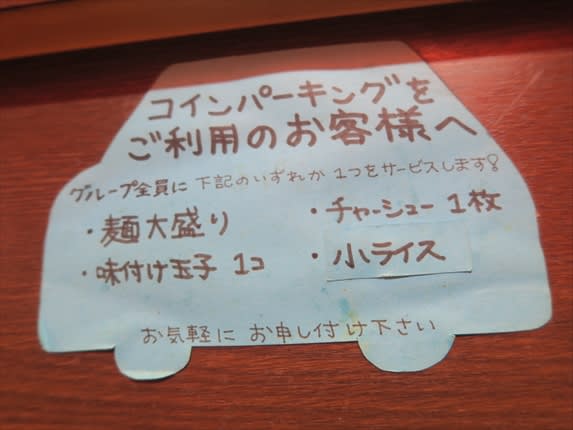 コインパーキングを
ご利用のお客様へ
グループ全員に 下記のいずれか 1つをサービスします!
・麺大盛り
・チャーシュー 1枚
・味付け玉子 1コ
・小ライス
お気軽に お申し付け下さい